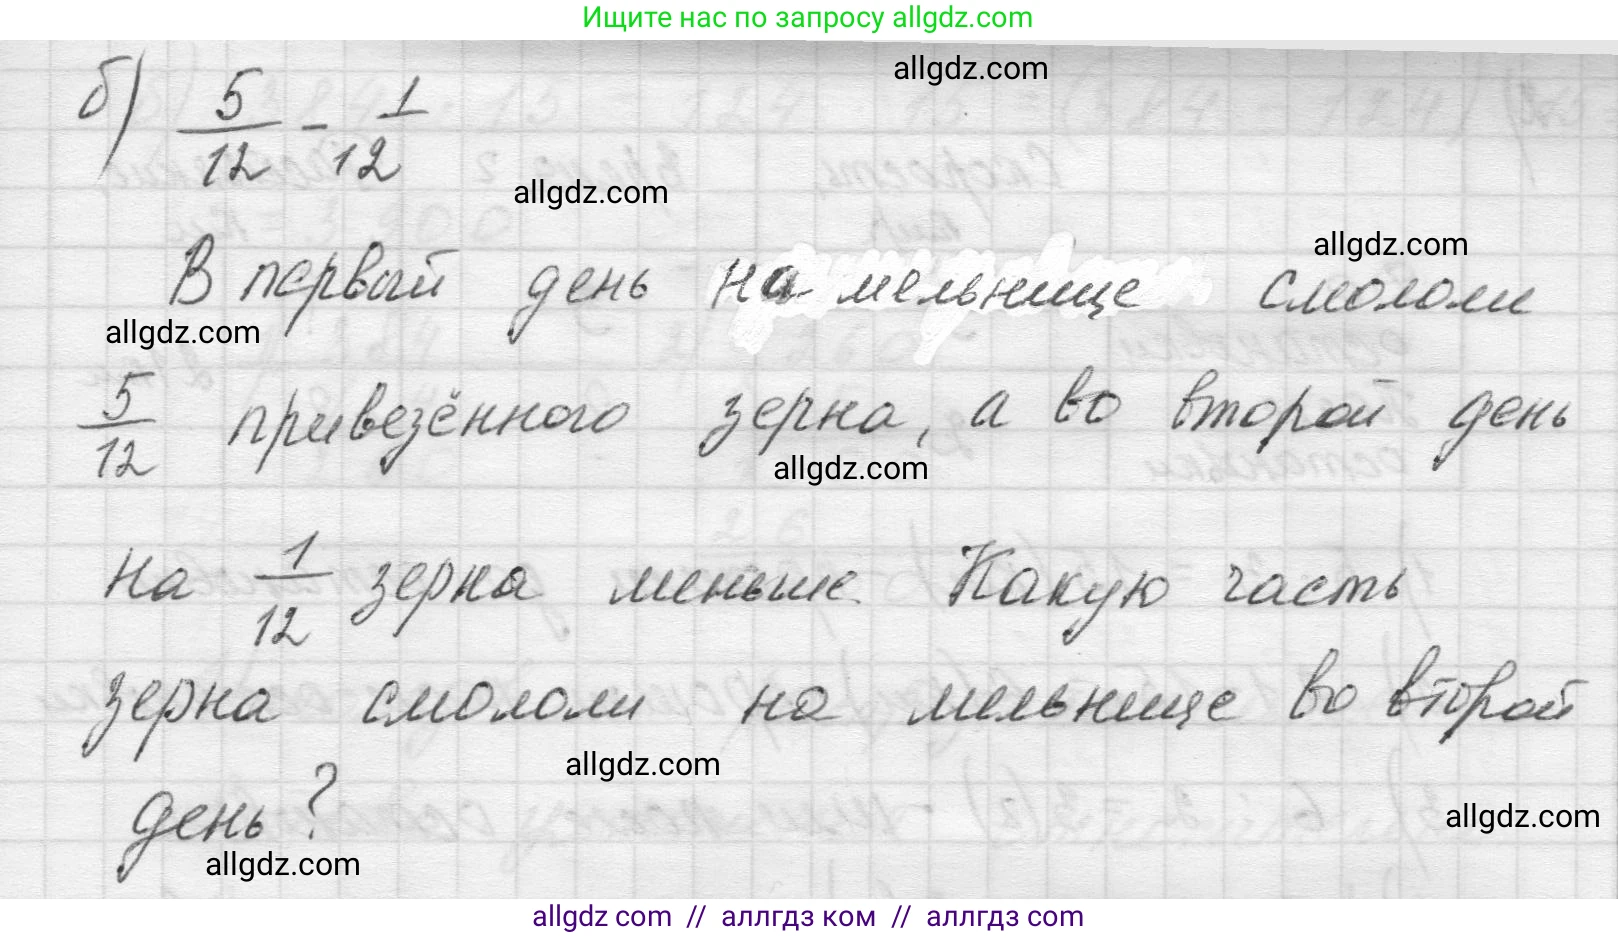 Ищите нас по запросу allgdz.com
allgdz.com
б) 5/12 - 1/12
allgdz.com
allgdz.com
В первый день на мельнице смололи
allgdz.com
5/12 привезённого зерна, а во второй день
allgdz.com
на 1/12 зерна меньше. Какую часть
зерна смололи на мельнице во второй
allgdz.com
день?
allgdz.com
allgdz.com
allgdz com // аллгдз ком // аллгдз com